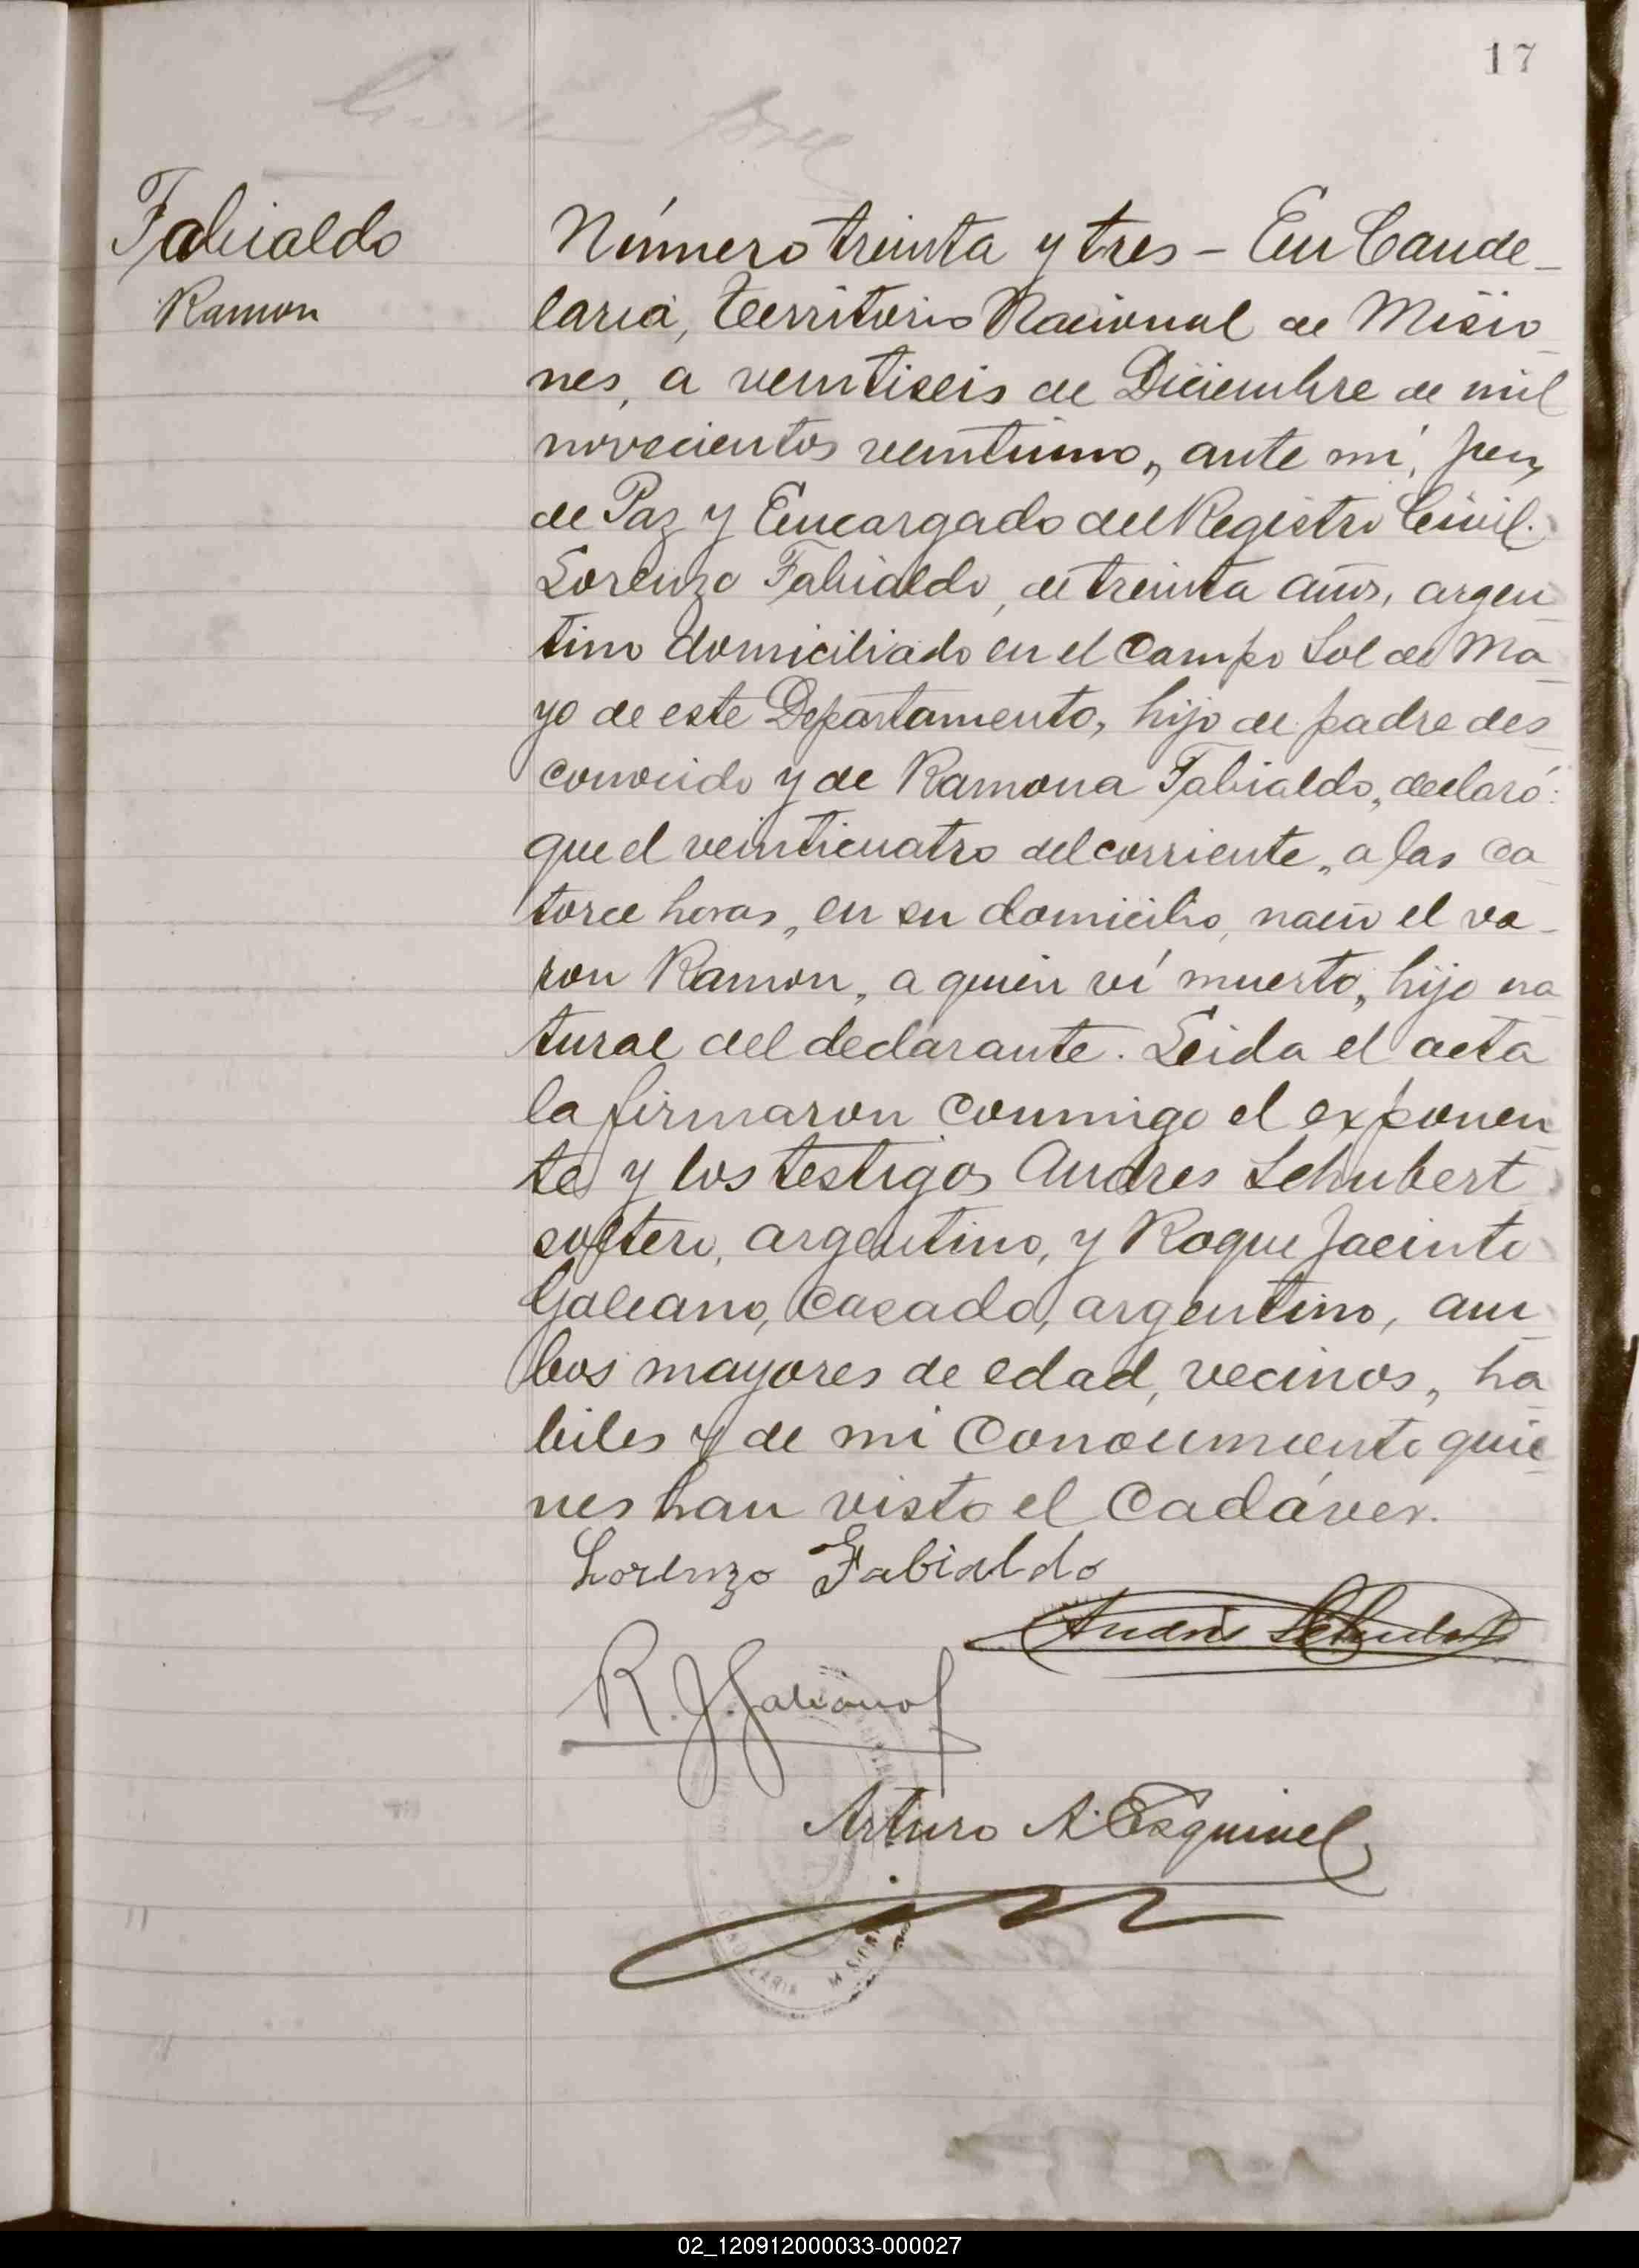 17
Fabialdo
Ramon
Número treinta y tres – En Cande-
laria, Territorio Nacional de Misio-
nes, a veintiseis de Diciembre de mil
novecientos veintiuno, ante mí, Juez
de Paz y Encargado del Registro Civil.
Lorenzo Fabialdo, de treinta años, argen-
tino domiciliado en el Campo Sol de Ma-
yo de este Departamento, hijo de padre des-
conocido y de Ramona Fabialdo, declaró:
que el veinticuatro del corriente, a las ca-
torce horas, en su domicilio, nació el va-
ron Ramon, a quien ví muerto, hijo na-
tural del declarante. Leida el acta
la firmaron conmigo el exponen-
te y los testigos Andres Schubert
soltero, argentino, y Roque Jacinto
Galeano, casado, argentino, am-
bos mayores de edad, vecinos, ha-
biles y de mi conocimiento quie-
nes han visto el cadáver.
Lorenzo Fabialdo
Andrés Schubert
R. J. Galeano
Arturo A. Esquivel
02_120912000033-000027